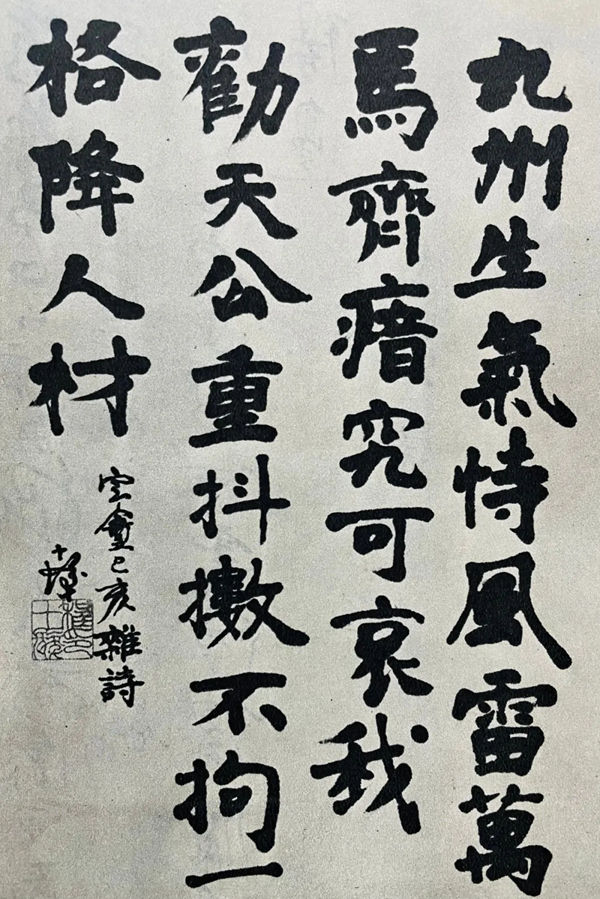 九州生氣恃風雷萬
馬齊瘖究可哀我
勸天公重抖擻不拘一
格降人材
定盦己亥雜詩